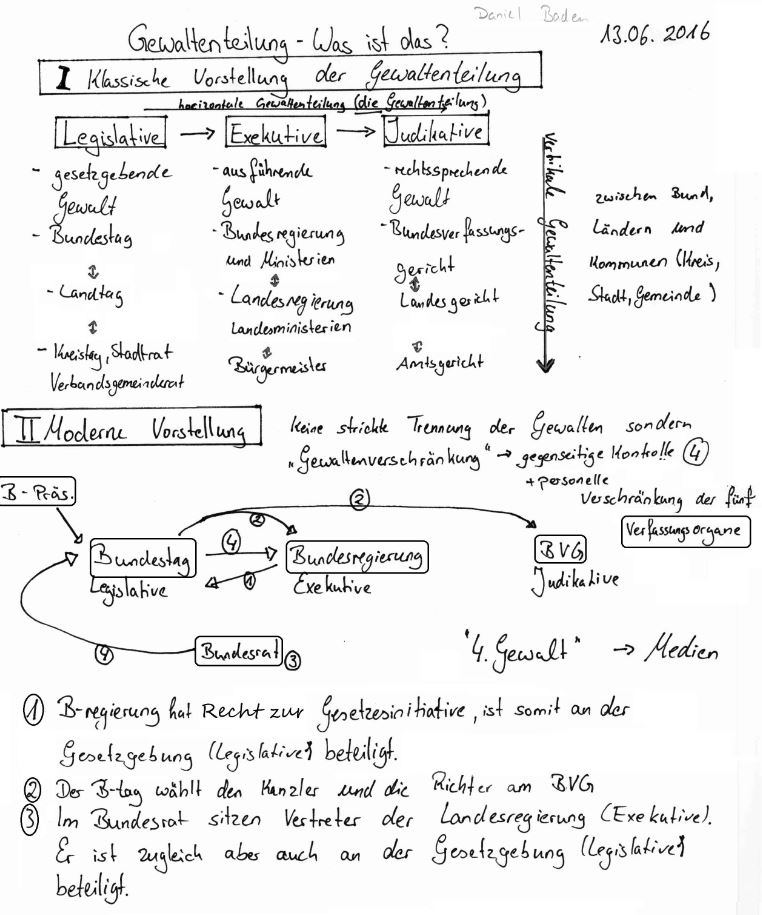 Daniel Baden
13.06.2016
Gewaltenteilung - Was ist das?
I Klassische Vorstellung der Gewaltenteilung
horizontale Gewaltenteilung (die Gewaltenteilung)
Legislative → Exekutive → Judikative
- gesetzgebende
Gewalt
- Bundestag
↕
- Landtag
↕
- Kreistag, Stadtrat
Verbandsgemeinderat
- ausführende
Gewalt
- Bundesregierung
und Ministerien
↕
- Landesregierung
Landesministerien
↕
Bürgermeister
- rechtssprechende
Gewalt
- Bundesverfassungs-
gericht
↕
Landesgericht
↕
Amtsgericht
vertikale Gewaltenteilung
zwischen Bund,
Ländern und
Kommunen (Kreis,
Stadt, Gemeinde)
II Moderne Vorstellung
keine strickte Trennung der Gewalten sondern
„Gewaltenverschränkung" → gegenseitige Kontrolle ④
+ personelle
Verschränkung der fünf
Verfassungsorgane
B-Präs.
②
② ④ ①
Bundestag
Legislative
Bundesregierung
Exekutive
BVG
Judikative
④
Bundesrat ③
"4. Gewalt" → Medien
① B-regierung hat Recht zur Gesetzesinitiative, ist somit an der
Gesetzgebung (Legislative) beteiligt.
② Der B-tag wählt den Kanzler und die Richter am BVG
③ Im Bundesrat sitzen Vertreter der Landesregierung (Exekutive).
Er ist zugleich aber auch an der Gesetzgebung (Legislative)
beteiligt.